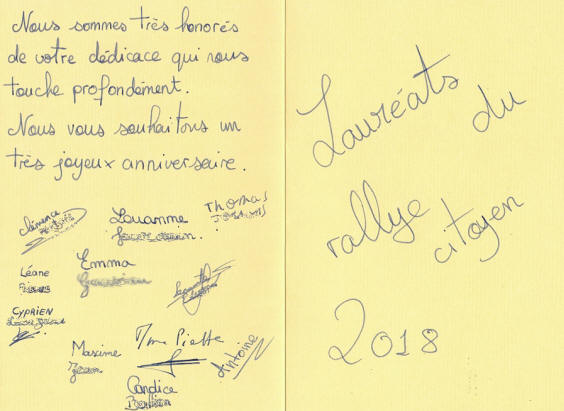 Nous sommes très honorés
de votre dédicace qui nous
touche profondément.
Nous vous souhaitons un
très joyeux anniversaire.
Clémence
Louanne
Thomas
Léane
Emma
CYPRIEN
Maxime
Mme Piette
Antoine
Candice
Lauréats du
rallye citoyen
2018